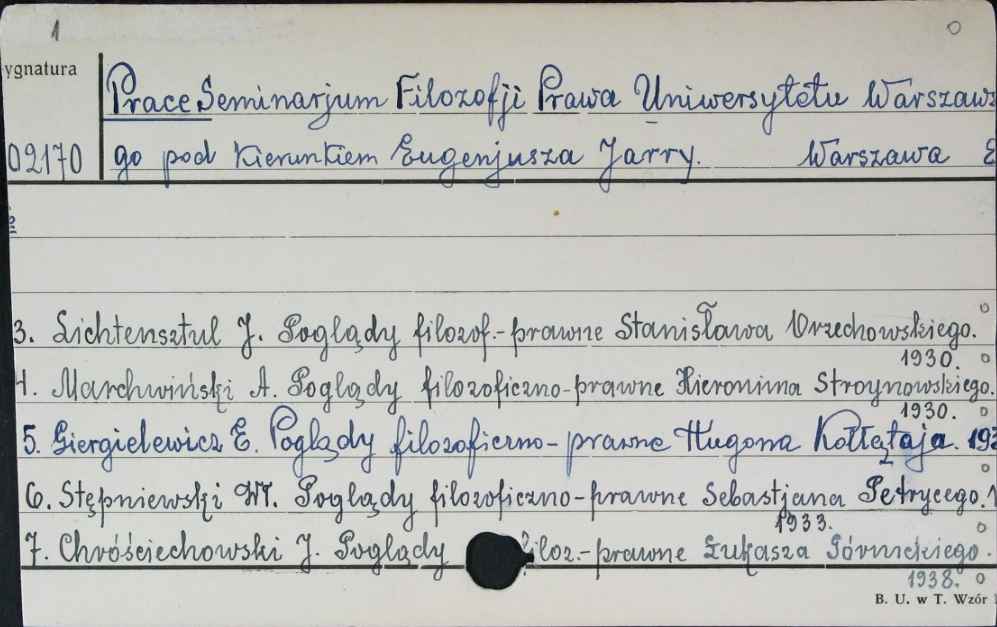 1 0
ygnatura
Prace Seminarjum Filozofji Prawa Uniwersytetu Warszaws
02170 go pod kierunkiem Eugenjusza Jarry. Warszawa
3. Lichtensztul J. Poglądy filozof.-prawne Stanisława Orzechowskiego.
1930.
4. Marchwiński A. Poglądy filozoficzno-prawne Hieronima Stroynowskiego.
1930.
5. Giergielewicz E. Poglądy filozoficzno-prawne Hugona Kołłątaja. 193
6. Stępniewski Wł. Poglądy filozoficzno-prawne Sebastjana Petrycego. 1
1933.
7. Chróściechowski J. Poglądy filoz.-prawne Łukasza Górnickiego.
1938.
B. U. w T. Wzór